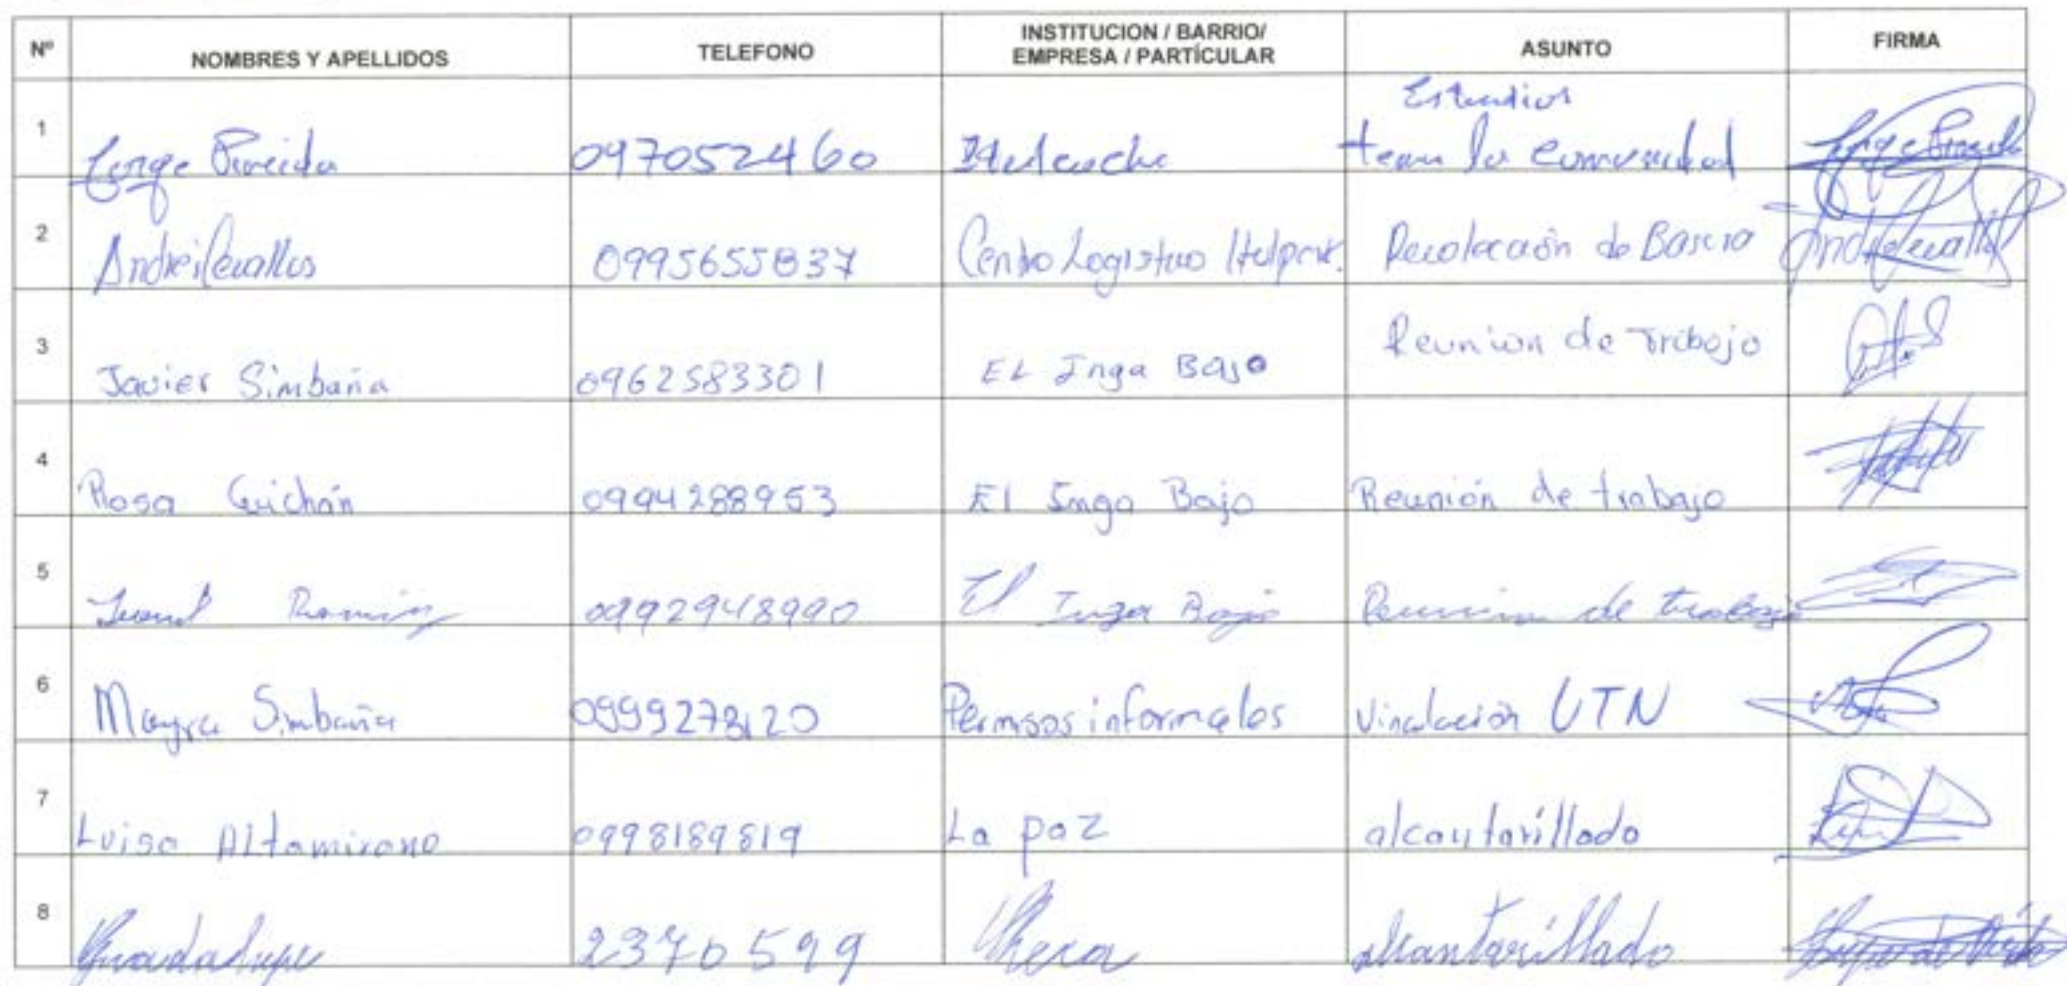 Nº NOMBRES Y APELLIDOS TELEFONO INSTITUCION / BARRIO/ EMPRESA / PARTÍCULAR ASUNTO FIRMA
Estudios
1 Jorge 0970524460 la comunidad
2 Andrei Cevallos 0995655837 Centro Logistico Recoleccion de Basura
3 Javier Simbaña 0962583301 EL Inga Bajo Reunion de Trabajo
4 Rosa Guichán 0994288953 El Inga Bajo Reunión de trabajo
5 0992948990 El Inga Bajo Reunion de trabajo
6 Mayra Simbaña 0999278120 Permisos informales Vinculación UTN
7 Luisa Altamirano 0998189819 La paz alcantarillado
8 Guadalupe 2370599 alcantarillado